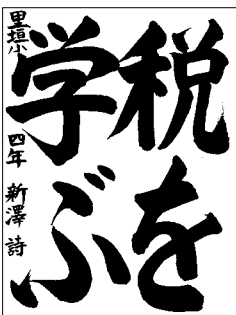 税を
学ぶ
里塩小 四年 新澤 詩